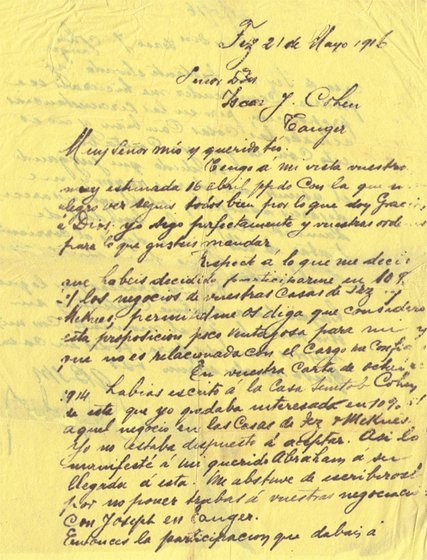 Fez 21 de Mayo 1916
Señor Dn
Isaac J. Cohen
Tanger
Muy Señor mío y querido tío.
Tengo á mi vista vuestra
muy estimada 16 abril ppdo con la que
alegro ver seguis todos bien por lo que doy Gracias
á Dios. yo sigo perfectamente y vuestras orde
para lo que gusteis mandar.
Respect á lo que me decis
que habeis decidido participarme en 10%
los negocios de vuestras Casas de Fez y
Meknes, permitidme os diga que considero
esta proposicion poco ventajosa para mi y
que no es relacionada con el Cargo
En vuestra Carta de
1914 habias escrito á la Casa Cohen
que yo quedaba interesado en 10%
aquel negocio en las Casas de Fez & Meknes.
Yo no estaba dispuesto á aceptar. Asi lo
manifesté á mi querido Abraham á su
llegada á esta. Me abstuve de escriberos
por no poner trabas á vuestras negociaci
Con Joseph en Tanger.
Entonces la participacion que dabais á